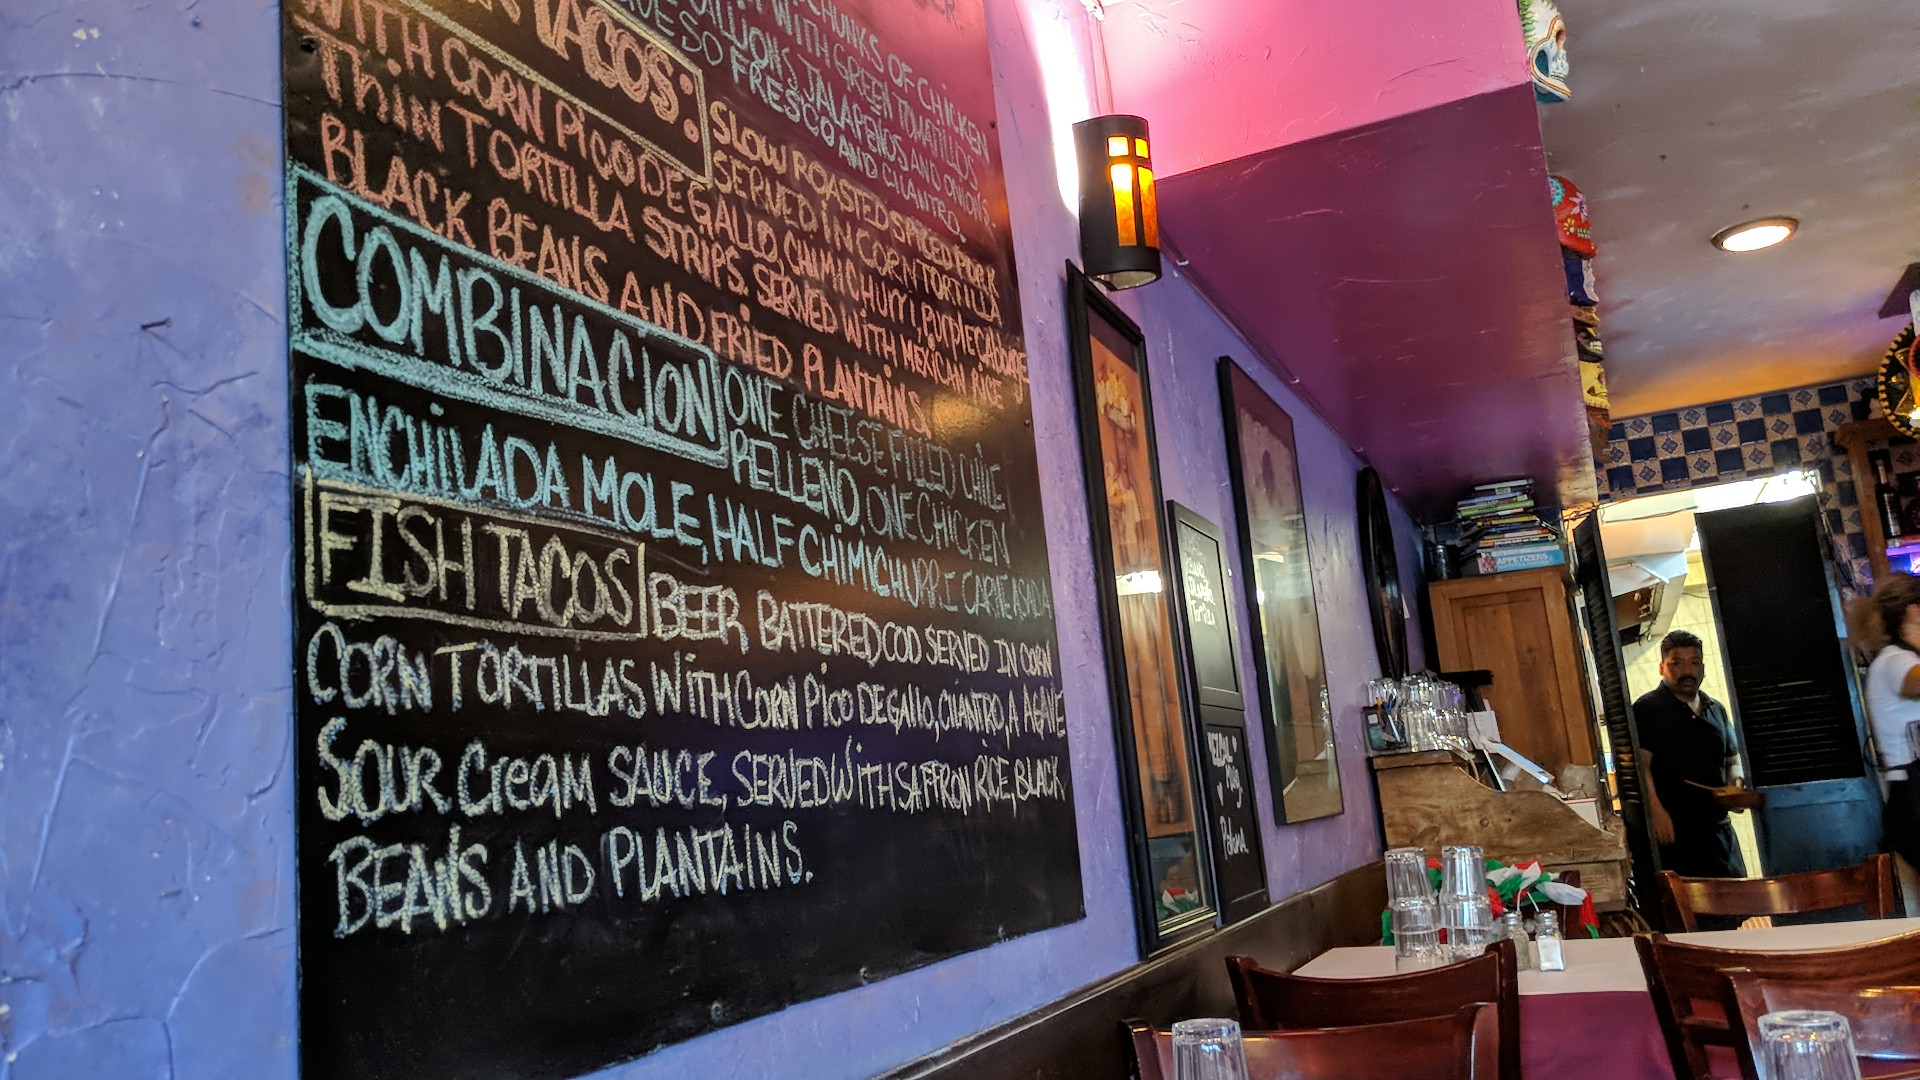 CHUNKS OF CHICKEN
WITH GREEN TOMATILLOS
JALAPEÑOS AND ONIONS.
QUESO FRESCO AND CILANTRO.
TACOS: SLOW ROASTED SPICED PORK
SERVED IN CORN TORTILLA
WITH CORN PICO DE GALLO, CHIMICHURRI, PURPLE CABBAGE
THIN TORTILLA STRIPS. SERVED WITH MEXICAN RICE
BLACK BEANS AND FRIED PLANTAINS.
COMBINACION ONE CHEESE FILLED CHILE
RELLENO, ONE CHICKEN
ENCHILADA MOLE, HALF CHIMICHURRI CARNE ASADA
FISH TACOS BEER BATTERED COD SERVED IN CORN
CORN TORTILLAS WITH CORN PICO DE GALLO, CILANTRO, A AGAVE
SOUR CREAM SAUCE, SERVED WITH SAFFRON RICE, BLACK
BEANS AND PLANTAINS.
APPETIZERS